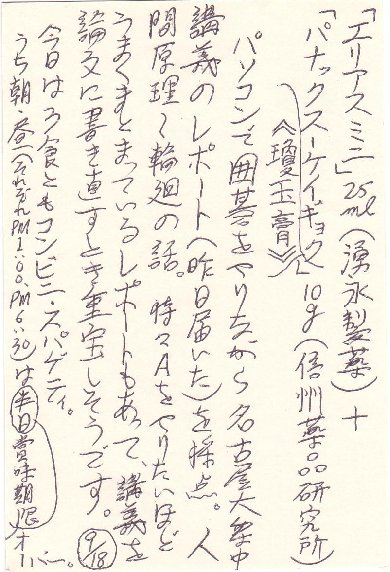 「エリアスミニ」25ml(湧永製薬)+
「パナックスーケイギョク」10g(信州薬品研究所)
《瓊玉膏》
パソコンで囲碁をやりながら名古屋大集中
講義のレポート(昨日届いた)を採点。人
間原理〜輪廻の話。時々Aをやりたいほど
うまくまとまっているレポートもあって、講義を
論文に書き直すとき重宝しそうです。
9/18
今日は3食ともコンビニ・スパゲティ。
うち朝・昼(それぞれPM1:00、PM6:30)は半日賞味期限オーバー。